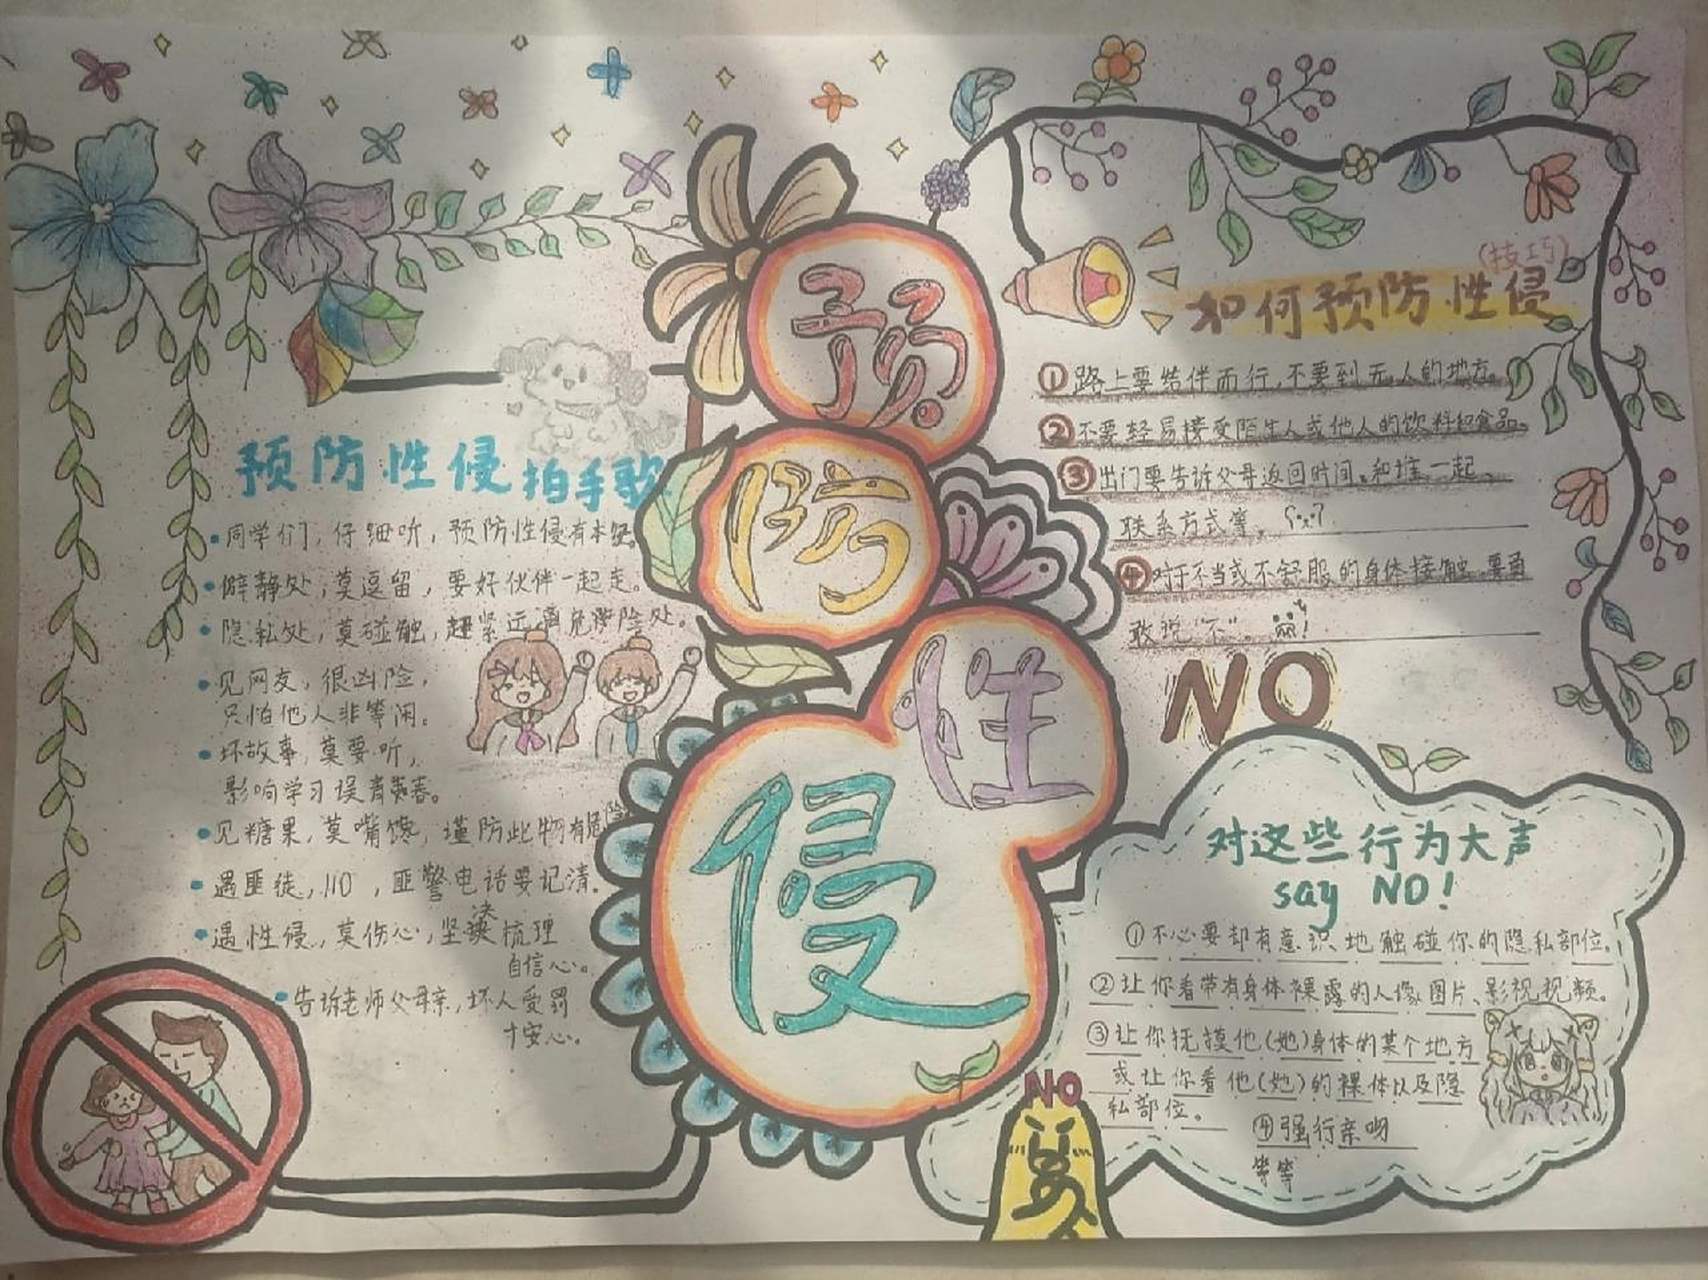 预
防
性
侵
预防性侵拍手歌
同学们,仔细听,预防性侵有本经。
僻静处,莫逗留,要好伙伴一起走。
隐私处,莫碰触,赶紧远离危险处。
见网友,很凶险,
只怕他人非等闲。
坏故事,莫要听,
影响学习误青春。
见糖果,莫嘴馋,谨防此物有危险
遇匪徒,110,匪警电话要记清.
遇性侵,莫伤心,坚决梳理
自信心。
告诉老师父母亲,坏人受罚
才安心。
(技巧)
如何预防性侵
①路上要结伴而行,不要到无人的地方。
②不要轻易接受陌生人或他人的饮料和食品。
③出门要告诉父母返回时间、和谁一起、
联系方式等,
④对于不当或不舒服的身体接触,要勇
敢说“不”。
NO
对这些行为大声
say NO!
①不必要却有意识地触碰你的隐私部位。
②让你看带有身体裸露的人像图片、影视视频。
③让你抚摸他(她)身体的某个地方
或让你看他(她)的裸体以及隐
私部位。
④强行亲吻
等等
NO